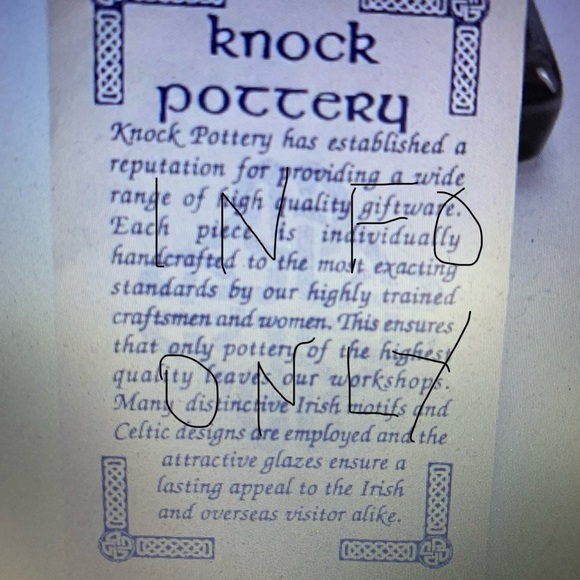 knock
pottery
Knock Pottery has established a
reputation for providing a wide
range of high quality giftware.
Each piece is individually
handcrafted to the most exacting
standards by our highly trained
craftsmen and women. This ensures
that only pottery of the highest
quality leaves our workshops.
Many distinctive Irish motifs and
Celtic designs are employed and the
attractive glazes ensure a
lasting appeal to the Irish
and overseas visitor alike.
INFO
ONLY